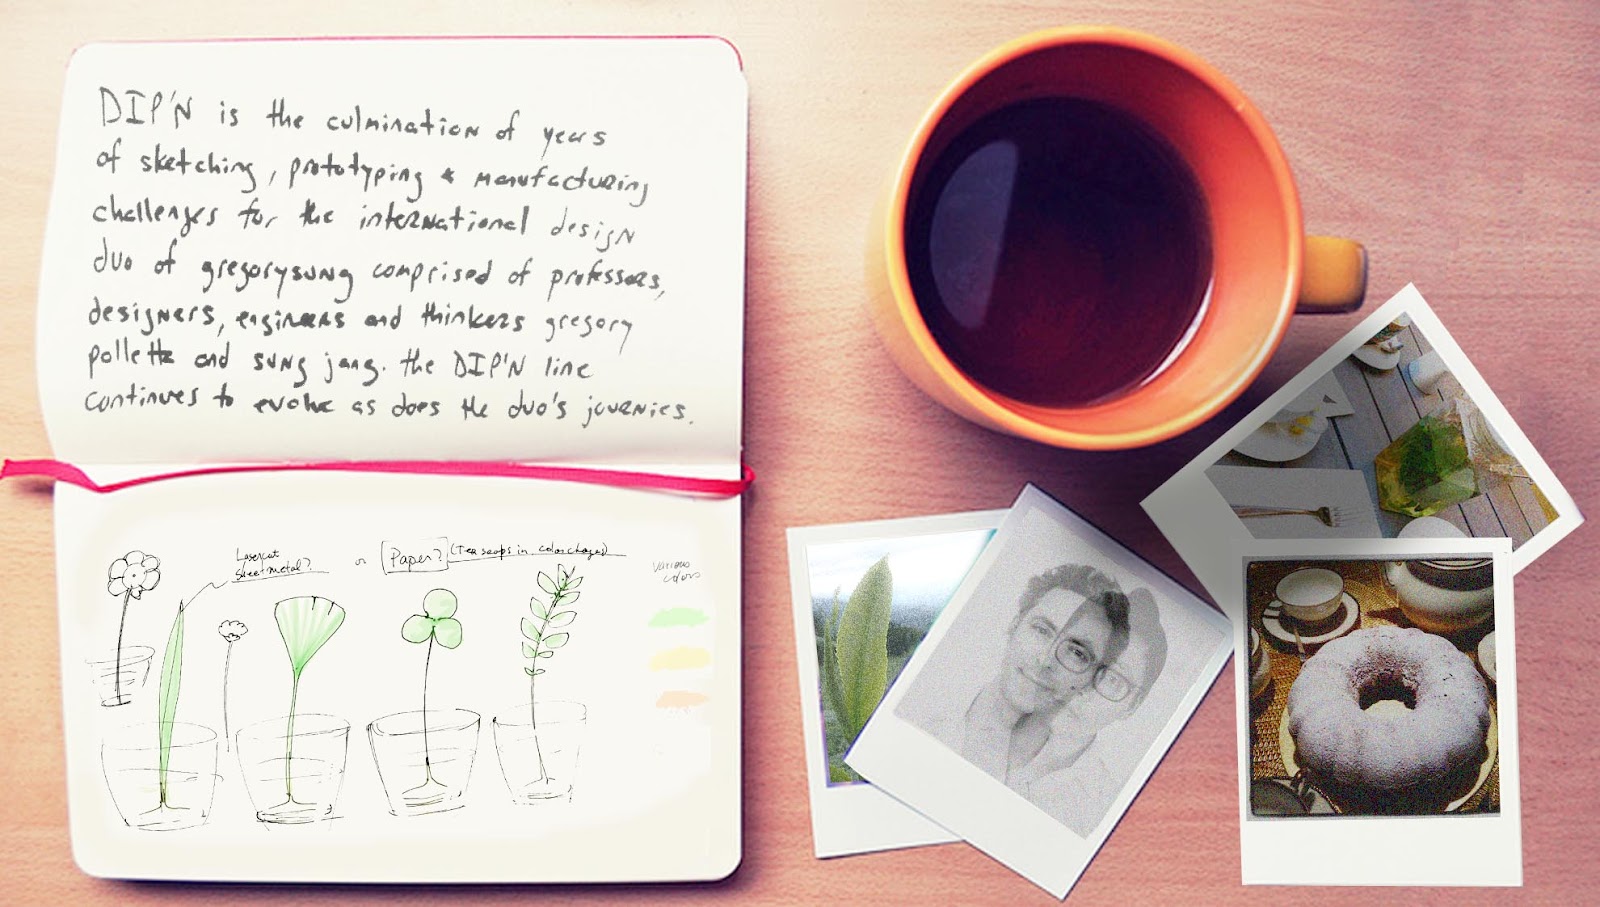 DIP'N is the culmination of years
of sketching, prototyping & manufacturing
challenges for the international design
duo of gregorysung comprised of professors,
designers, engineers and thinkers gregory
pollette and sung jang. the DIP'N line
continues to evolve as does the duo's journies.
Lasercut
sheetmetal?
or
Paper?
(Tea seeps in, color changes)
various
colors